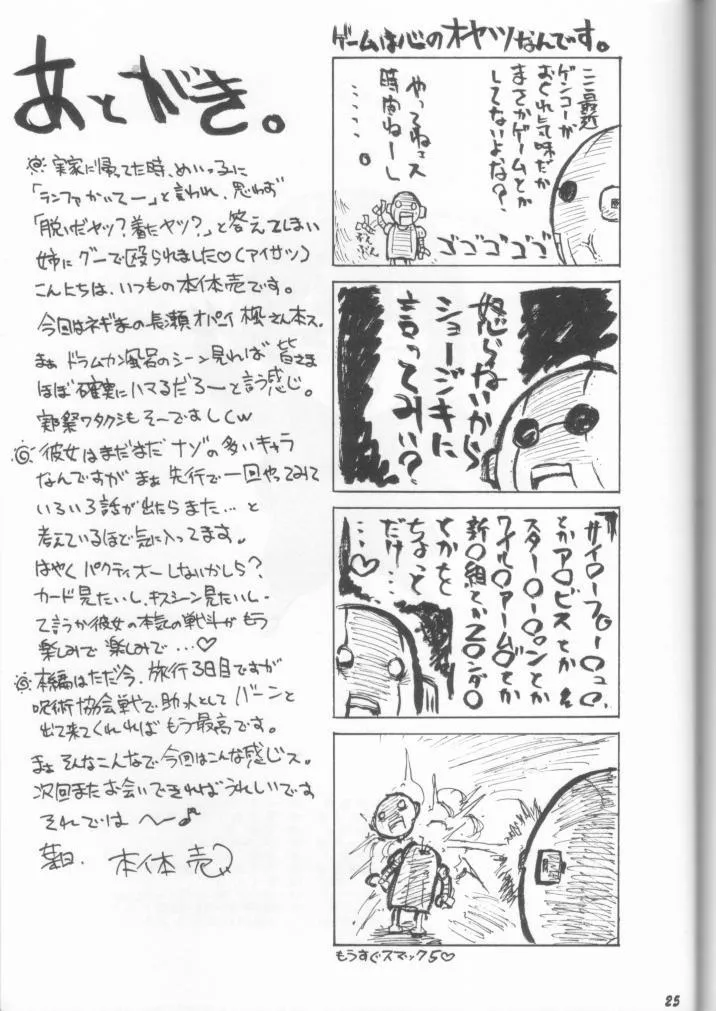 あとがき。
◎実家に帰ってた時、めいっ子に
「ランファかいてー」と言われ、思わず
「脱いだヤツ?着たヤツ?」と答えてしまい
姉にグーで殴られました♡(アイサツ)
こんにちは、いつもの本体売です。
今回はネギまの長瀬オパイ楓さん本ス。
まぁドラムカン風呂のシーン見れば皆さま
ほぼ確実にハマるだろーと言う感じ。
実際ワタクシもそーですしくw
◎彼女はまだまだナゾの多いキャラ
なんですがまぁ先行で一回やってみて
いろいろ話が出たらまた…と
考えているほど気に入ってます。
はやくパクティオーしないかしら?
カード見たいし、キスシーン見たいし・
て言うか彼女の本気の戦斗がもう
楽しみで楽しみで…♡
◎本編はただ今、旅行3日目ですが
呪術協会戦で助っ人としてバーンと
出て来てくれればもう最高です。
まぁそんなこんなで今回はこんな感じス。
次回またお会いできればうれしいです
それでは へ〜♪
本体売
ゲームは心のオヤツなんです。
ここ最近
ゲンコーが
おくれ気味だか
まさかゲームとか
してないよな?
やってねェス
時間ねーし
……。
ゴゴゴゴゴ
怒らないから
ショージキに
言ってみい?
とかア〇ビスとか
スター〇ー〇ンとか
ワイル〇アーム〇とか
新〇組とかZ〇ンダ〇
とかをと
ちょっと
だけ…
…♡
もうすぐスマック5♡
25